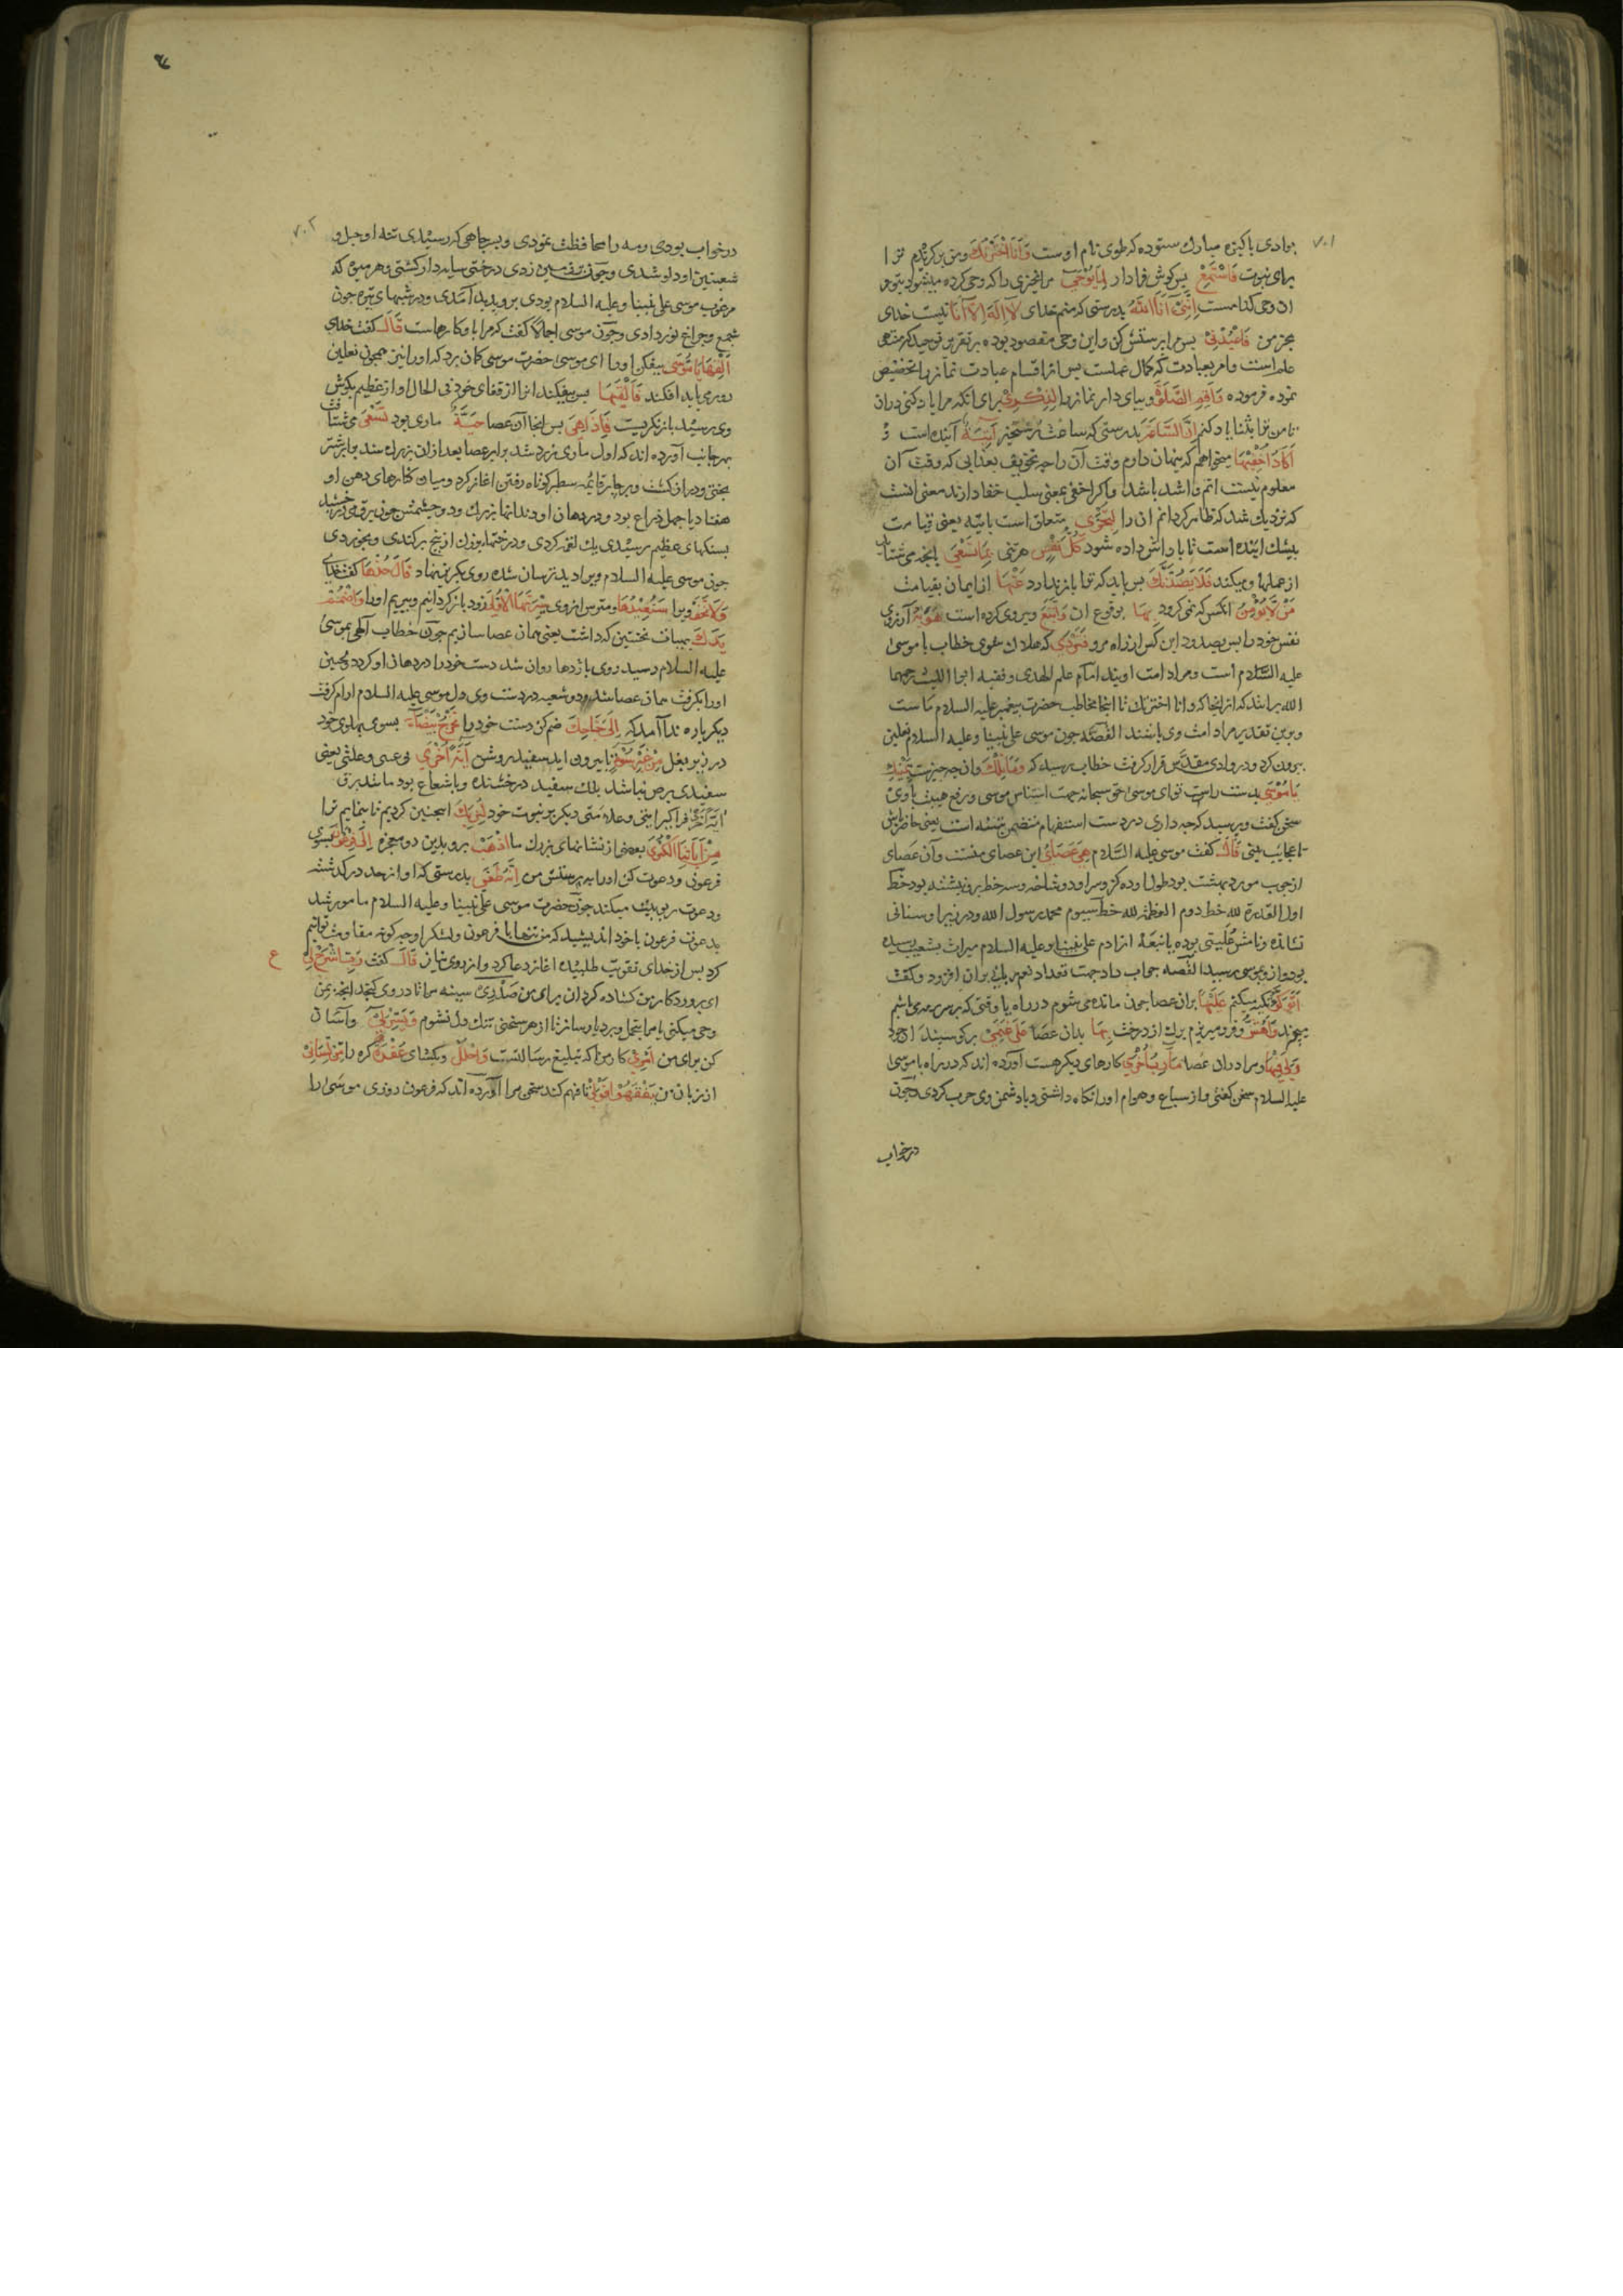 ۷۰۱
بوادی پاکیزه مبارك ستوده که طوی نام اوست وَأَنَا اخْتَرْتُكَ ومن برکزیدم ترا
برای نبوت فَاسْتَمِعْ پس کوش فرادار لِمَا يُوحَى مر انچیزی را که وحی کرده میشود بتو و
ان وحی کدامست إِنَّنِي أَنَا اللَّهُ بدرستی که منم خدای لَا إِلَهَ إِلَّا أَنَا نیست خدای
بجز من فَاعْبُدْنِي پس مرا پرستش کن واین وحی مقصود بوده بر تقریر توحید که منتهی
علم است وامر بعبادت که کمال عملست پس از اقسام عبادت نماز را تخصیص
نموده فرموده وَأَقِمِ الصَّلَوةَ وبپای دار نماز را لِذِكْرِي برای انکه مرا یاد کنی دران
تا من ترا بثنا یاد کنم إِنَّ السَّاعَةَ بدرستی که ساعت رستخیز آتِيَةٌ آینده است و
أَكَادُ أُخْفِيهَا میخواهم که پنهان دارم وقت آن را چه تخویف بعذابی که وقت آن
معلوم نیست اتم واشد باشد واکر اخفی بمعنی سلب خفا دارند معنی انست
که نزدیك شد که ظاهر کردانم ان را لِتُجْزَى متعلق است باتیه یعنی قیامت
بیشك اینده است تا پاداش داده شود كُلُّ نَفْسٍ هر تنی بِمَا تَسْعَى بانچه می شتابد
از عملها ومیکند فَلَا يَصُدَّنَّكَ پس باید که ترا باز ندارد عَنْهَا از ایمان بقیامت
مَنْ لَا يُؤْمِنُ انکس که نمی کرود بِهَا بوقوع ان وَاتَّبَعَ وپیروی کرده است هَوَيهُ آرزوی
نفس خود را پس بصدود این کس از راه مرو فَتَرْدَى که هلاك شوی خطاب با موسی
علیه السّلام است ومراد امت اویند امام علم الهدی وفقیه ابو اللیث رحمهما
الله برانند که از انجا که وانا اخترتك تا اینجا مخاطب حضرت پیغمبر علیه السلام ماست
وبرین تقدیر مراد امت وی باشند القصّه چون موسی علی نبینا وعلیه السلام نعلین
بیرون کرد ودر وادی مقدّس قرار کرفت خطاب رسید که وَمَا تِلْكَ وان چه چیزست بِيَمِينِكَ
يَا مُوسَى بدست راست تو ای موسی حق سبحانه جهت استیناس موسی ورفع هیبت با وی
سخن کفت وپرسید که چه داری در دست استفهام متضمن تنبیه است یعنی حاضر باش
تا عجایب بینی قَالَ کفت موسی علیه السّلام هِيَ عَصَايَ این عصای منست وآن عصای
از چوب مورد بهشت بود طول او ده کز وسر او دو شاخه وسه خط برو نبشته بود خط
اول القدرة لله خط دوم العظمة لله خط سیوم محمد رسول الله ودر زیر او سنانی
نشانده ونامش علّیق بوده یا نبعه از ادم علی نبینا وعلیه السلام میراث بشعیب رسیده
بود واز وبموسی رسید القصه جواب داد جهت تعداد نعم ربانی بران افزود وکفت
أَتَوَكَّؤُ تکیه میکنم عَلَيْهَا بران عصا چون مانده می شوم در راه یا وقتی که بر سر رمه می باشم
بیعزند وَأَهُشُّ وفرو میریزم برك از درخت بِهَا بدان عصا عَلَى غَنَمِي بر کوسپندان خود
وَلِيَ فِيهَا ومرا دران عصا مَآرِبُ أُخْرَى کارهای دیکر هست آورده اند که در راه با موسی
علیه السلام سخن کفتی واز سباع وهوام اورا نکاه داشتی وبا دشمن وی حرب کردی وچون
درخواب
۷۰۲
درخواب بودی رمه را محافظت نمودی وبهر چاهی که رسیدی تنه او حبل و
شعبتین او دلو شدی وچون بزمین زدی درختی سایه دار کشتی وهر میوه که
مرغوب موسی علی نبینا وعلیه السلام بودی برو پدید آمدی ودر شبهای تیره چون
شمع وچراغ نور دادی وچون موسی اجمالا کفت که مرا با وکارهاست قَالَ کفت خدای
أَلْقِهَا يَا مُوسَى بیفکن اورا ای موسی حضرت موسی کمان برد که اورا نیز همچون نعلین
دور می باید افکند فَأَلْقَيهَا پس بیفکند انرا از قفای خود فی الحال اواز عظیم بکوش
وی رسید باز نکریست فَإِذَا هِيَ پس انجا آن عصا حَيَّةٌ ماری بود تَسْعَى می شتافت
بهر جانب آورده اند که اول ماری زرد شد برابر عصا بعد ازان بزرك شد برابر شتر
بختی ودراز کشت وبر چهار قائمه سطبر کوتاه رفتن اغاز کرد ومیان کنارهای دهن او
هفتاد یا چهل ذراع بود ودر دهان او دندانها بزرك ودو چشمش چون برق می درخشید
بسنکهای عظیم رسیدی یك لقمه کردی ودرختها بزرك از بیخ برکندی وبخوردی
چون موسی علیه السلام ویرا دید ترسان شده روی بکریز نهاد قَالَ خُذْهَا کفت خدای
وَلَا تَخَفْ ویرا سَنُعِيدُهَا ومترس از وی سِيرَتَهَا الْأُولَى زود باز کردانیم وببریم اورا وَاضْمُمْ
يَدَكَ بهیات نخستین که داشت یعنی همان عصا سازیم چون خطاب آلهی بموسی
علیه السلام رسید روی باژدها روان شد دست خود را در دهان او کرد ولحیین
اورا بکرفت همان عصا شد ودو شعبه در دست وی دل موسی علیه السلام ارام کرفت
دیکر باره ندا آمد که إِلَى جَنَاحِكَ ضم کن دست خود را تَخْرُجْ بَيْضَاءَ بسوی پهلوی خود
در زیر بغل مِنْ غَيْرِ سُوءٍ تا بیرون اید سفید روشن آيَةً أُخْرَى بی عیبی وعلتی یعنی
سفیدی برص نباشد بلك سفید درخشنده وبا شعاع بود مانند برق
ایة اخری فراکیر ایتی وعلامتی دیکر بر نبوت خود لِنُرِيَكَ اینچنین کردیم تا بنماییم ترا
مِنْ آيَاتِنَا الْكُبْرَى بعضی از نشانهای بزرك ما اذْهَبْ برو بدین دو معجزه إِلَى فِرْعَوْنَ بسوی
فرعون ودعوت کن اورا به پرستش من إِنَّهُ طَغَى بدرستی که او از حد در کذشته
ودعوت ربوبیت میکند چون حضرت موسی علی نبینا وعلیه السلام مامور شد
بدعوت فرعون با خود اندیشید که من تنها با فرعون ولشکر او چه کونه مقاومت توانم
کرد پس از خدای تقویت طلبیده اغاز دعا کرد واز روی نیاز قَالَ کفت رَبِّ اشْرَحْ لِي ع
ای پروردکار من کشاده کردان برای من صَدْرِي سینه مرا تا در وی کنجد انچه بمن
وحی میکنی یا مرا بتحمل وبردبار ساز تا از هر سختی تنك دل نشوم وَيَسِّرْ لِي وآسان
کن برای من أَمْرِي کار من که تبلیغ رسالتست وَاحْلُلْ وبکشای عُقْدَةً کره را مِنْ لِسَانِي
از زبان من يَفْقَهُوا قَوْلِي تا فهم کنند سخن مرا آورده اند که فرعون روزی موسی را